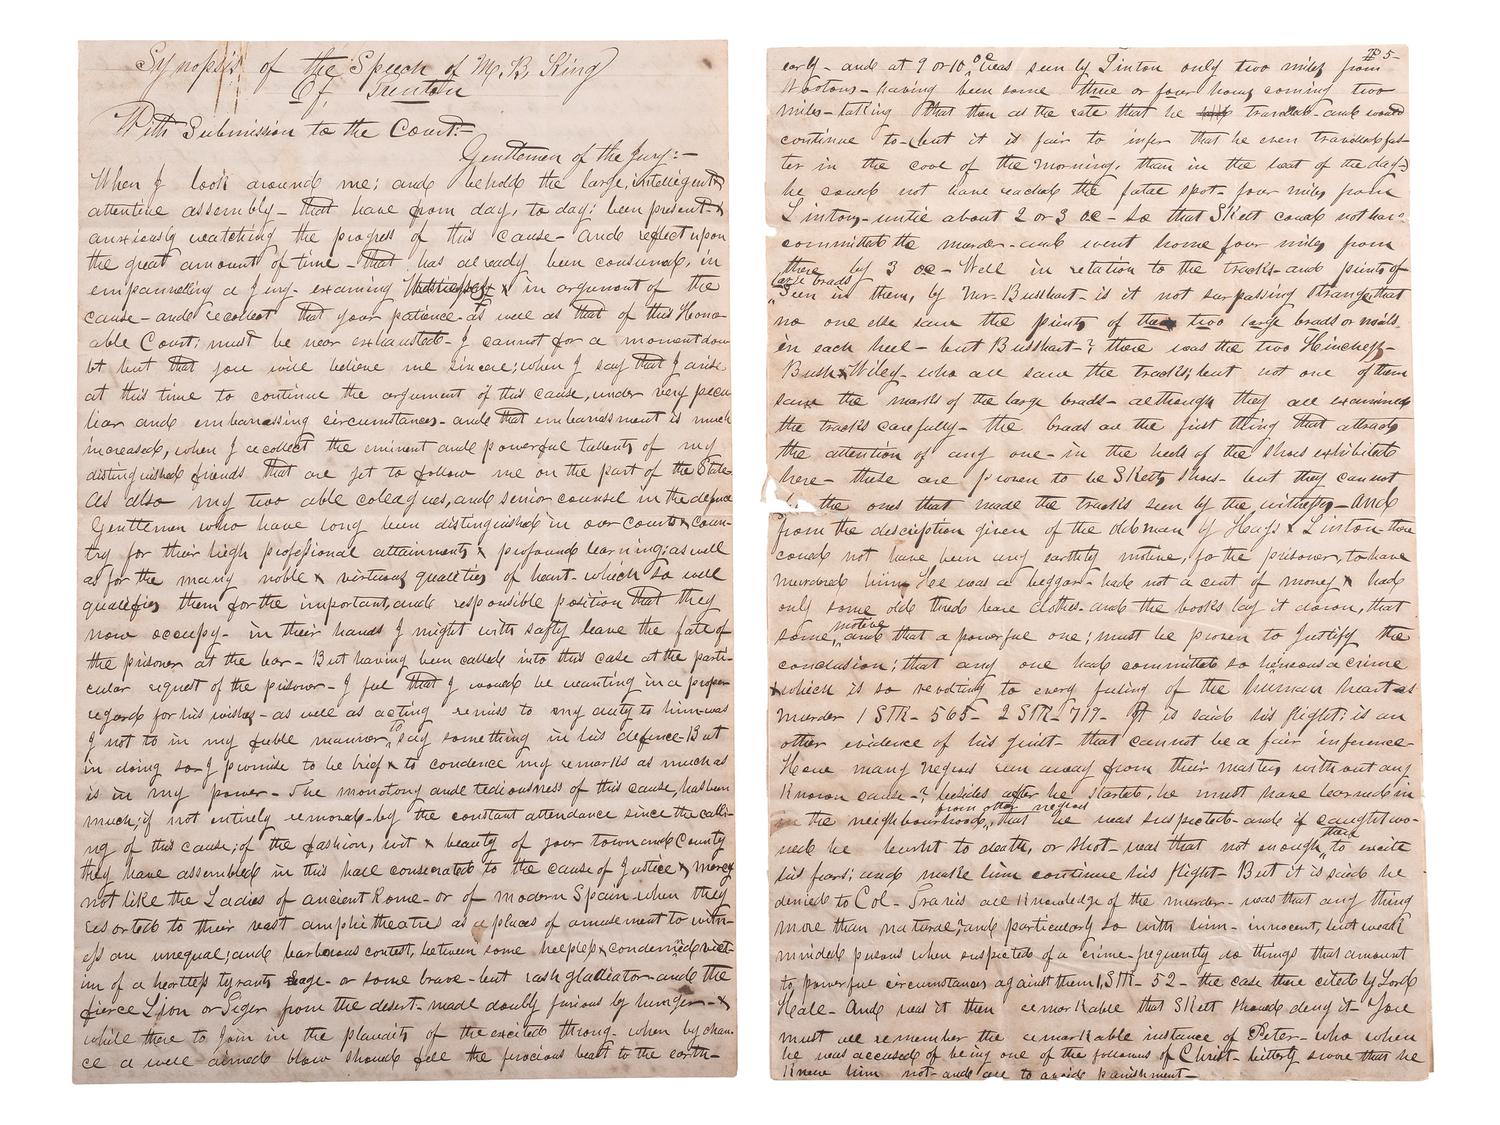 Synopsis of the Speech of M. B. King
Of, Trenton
With Submission to the Court:-
Gentlemen of the Jury:-
When I look around me; and behold the large, intelligent &
attentive assembly - that have from day, to day; been present - &
anxiously watching the progress of this cause - and reflect upon
the great amount of time - that has already been consumed, in
empannelling a Jury - examing Witnesses & in argument of the
cause - and recollect that your patience - as well as that of this Hono-
able Court; must be near exhausted - I cannot for a moment dou-
bt but that you will believe me sincere; when I say that I arise
at this time to continue the argument of this cause, under very pecu
liar and embarrassing circumstances - and that embarrassment is much
increased, when I recollect the eminent and powerful tallents of my
distinguished friends that are yet to follow me on the part of the State
As also my two able coleagues, and senior counsel in the defence
Gentlemen who have long been distinguished in our Courts & coun-
try for their high professional attainments & profound learning; as well
as for the many noble & virtuous qualities of heart - which so well
qualifies them for the important, and responsible position that they
now occupy - in their hands I might with safty leave the fate of
the prisoner at the bar - But having been called into this case at the parti-
cular request of the prisoner - I feel that I would be wanting in a proper
regard for his wishes - as well as acting remiss to my duty to him - was
I not to in my feeble manner, to say something in his defence - But
in doing so - I promise to be brief & to condence my remarks as much as
is in my power - The monotony and tediousness of this cause, has been
much; if not entirely removed - by the constant attendance since the calli-
ng of this cause; of the fashion, wit & beauty of your town and County
they have assembled in this hall consecrated to the cause of Justice & mercy
not like the Ladies of ancient Rome - or of modern Spain - when they
resorted to their vast amphitheatres as a places of amusement to witn-
ess an unequal; and barbarous contest, between some helpless & condemned vict-
im of a heartless tyrants rage - or some brave - but rash gladiator - and the
fierce Lion or Tiger from the desert - made doubly furious by hunger - &
while there to Join in the plaudits of the excited throng - when by chan-
ce a well aimed blow should fell the ferocious beast to the earth -
P 5-
early - and at 9 or 10 oc was seen by Linton only two miles from
Wootons - having been some three or four hours coming two
miles - taking that then as the rate that he travelled - and would
continue to - (but it is fair to infer that he even travelled fas-
ter in the cool of the morning, than in the heat of the day)
he could not have reached the fatal spot - four miles from
Linton, - until about 2 or 3 oc - So that Skett could not have
committed the murder - and went home four miles from
there by 3 oc - Well in relation to the tracks - and prints of
large brads
seen in them, by Mr. Bushart - is it not surpassing strange, that
no one else saw the prints of two large brads or nails
in each heel - but Bushart - ? there was the two Hinchess -
Bush & Wiley - who all saw the tracks; but not one of them
saw the marks of the large brads - although they all examined
the tracks carefully - the brads are the first thing that attracts
the attention of any one - in the heels of the shoes exhibited
here - these are proven to be Sketts shoes - but they cannot
be the ones that made the tracks seen by the witnesses - And
from the description given of the old man by Hays & Linton - there
could not have been any earthly motive, for the prisoner, to have
murdered him - He was a beggar - had not a cent of money & had
only some old thred bare clothes - and the books lay it down, that
some motive, and that a powerful one; must be proven to Justify the
conclusion; that any one had committed so heinous a crime
& which is so revolting to every feeling of the human heart - as
murder 1 Str. - 565 - 2 Str. - 719 - It is said his flight; is an
other evidence of his guilt - that cannot be a fair inference -
Have many negroes run away from their masters without any
known cause - ? besides after he started, he must have learned in
in the neighbourhood, from other negroes that he was suspected - and if caught wo-
uld be burnt to death, or shot - was that not enough, there to excite
his fears; and make him continue his flight - But it is said he
denied to Col - Travis all knowledge of the murder - was that any thing
more than natural; and particularly so with him - innocent, but weak
minded persons when suspected of a crime - frequently do things that amount
to powerful circumstances against them, 1 Str. - 52 - the case there cited by Lord
Hale - And was it then remarkable that Skett should deny it - You
must all remember the remarkable instance of Peter - who when
he was accused of being one of the followers of Christ - bitterly swore that he
knew him not - and all to avoid punishment -